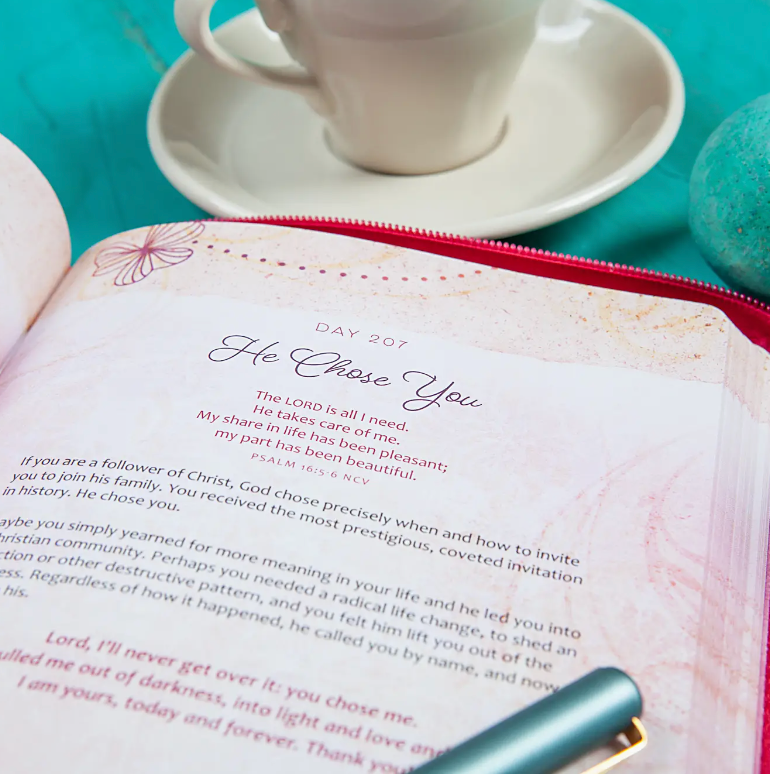 DAY 207
He Chose You
The LORD is all I need.
He takes care of me.
My share in life has been pleasant;
my part has been beautiful.
PSALM 16:5-6 NCV
If you are a follower of Christ, God chose precisely when and how to invite
you to join his family. You received the most prestigious, coveted invitation
in history. He chose you.
aybe you simply yearned for more meaning in your life and he led you into
hristian community. Perhaps you needed a radical life change, to shed an
ction or other destructive pattern, and you felt him lift you out of the
ess. Regardless of how it happened, he called you by name, and now
his.
Lord, I'll never get over it: you chose me.
ulled me out of darkness, into light and love and
I am yours, today and forever. Thank you